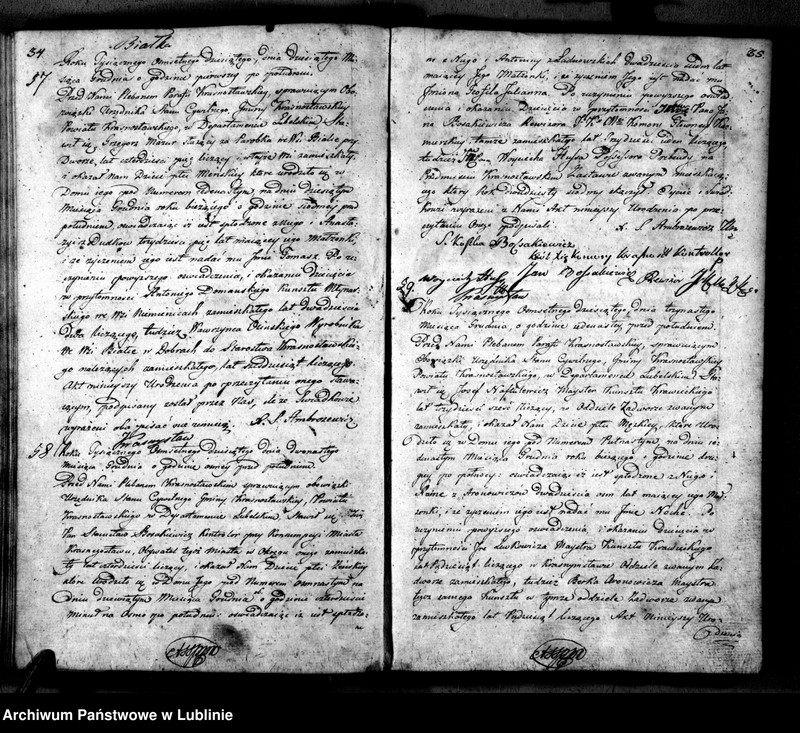 34
Białka
57
Roku Tysiącznego Ośmsetnego Dziesiątego, dnia Dziesiątego Mie-
siąca Grudnia o godzinie pierwszej po południu.
Przed Nami Plebanem Parafii Krasnostawskiej, sprawującym Obo-
wiązki Urzędnika Stanu Cywilnego, Gminy Krasnostawskiej
Powiatu Krasnostawskiego, w Departamencie Lubelskim Sta-
wił się Grzegorz Mazur Służący za Parobka we Wsi Białce przy
Dworze, lat czterdzieści pięć liczący, w teyże Wsi zamieszkały
i okazał Nam Dziecię płci Męskiey które urodziło się w
Domu jego pod Numerem na dniu dziesiątym
Miesiąca Grudnia roku bieżącego o godzinie siódmey przed
południem oświadczając iż iest spłodzone z niego i Anasta-
zyi z Dudków trzydzieści pięć lat maiącey iego Małżonki,
i że życzeniem jego iest nadać mu Jmie Tomasz. Po u-
czynieniu powyższego oświadczenia, i okazaniu Dziecięcia
w przytomności Antoniego Domańskiego Kunsztu Młynar-
skiego we Wsi Niemienicach zamieszkałego lat dwadzieścia
dwa liczącego, tudzież Wawrzyńca Wyrobnika
we Wsi Białce w Dobrach do Starostwa Krasnostawskie-
go należących zamieszkałego, lat sześćdziesiąt liczącego.
Akt ninieyszy Urodzenia po przeczytaniu onego stawa-
iącym, podpisany został przez Nas, ile że Świadkowie
wyrażeni oba pisać nie umieią. X. J. Ambrożewicz
Krasnystaw
58
Roku Tysiącznego Ośmsetnego Dziesiątego dnia dwunastego
Miesiąca Grudnia o godzinie ósmey przed południem.
Przed Nami Plebanem Krasnostawskim sprawującym obowiązki
Urzędnika Stanu Cywilnego Gminy Krasnostawskiey, Powiatu
Krasnostawskiego w Departamencie Lubelskim. Stawił się
Pan Stanisław Bossakiewicz Kontrolor przy Konsumpcyi Miasta
Krasnegostawu, Obywatel tegoż Miasta w Okręgu onego zamieszka-
ły lat czterdzieści liczący, i okazał Nam Dziecię płci Żeńskiey
które urodziło się w Domu Jego pod Numerem Ośmnastym na
dniu dziewiątym Miesiąca Grudnia o godzinie czterdzieści
minut na Osmą po południu: oświadczając iż iest spłodzo-
35
ne z Niego i Antoniny z dwadzieścia siedm lat
maiącey Jego Małżonki, i że życzeniem Jego iest nadać mu
Jmiona Teofila Julianna. Po uczynieniu powyższego oświad-
czenia i okazaniu Dziecięcia w przytomności Pana Ja-
na Bosakiewicza Rewizora Komory
tamże zamieszkałego lat trzydzieści ieden liczącego,
tudzież Woyciecha Possessora na
Przedmieściu Krasnostawskim Zastawie zwanym mieszkają-
cego który Rok dwudziesty siódmy skończył. Oyciec i Świad-
kowie wyrażeni z Nami Akt ninieyszy Urodzenia po prze-
czytaniu Onego podpisali. X. J. Ambrożewicz
S. Bossakiewicz
Kontrollor
Woyciech Jan Bossakiewicz Rewizor
59.
Krasnystaw
Roku Tysiącznego Ośmsetnego Dziesiątego, dnia trzynastego
Miesiąca Grudnia, o godzinie iedenastey przed południem.
Przed Nami Plebanem Parafii Krasnostawskiey, sprawującym
Obowiązki Urzędnika Stanu Cywilnego, Gminy Krasnostawskiey
Powiatu Krasnostawskiego, w Departamencie Lubelskim Sta-
wił się Josef Naftulewicz Majster Kunsztu Krawieckiego
lat trzydzieści sześć liczący, w Oddziele Zadworze zwanym
zamieszkały, i okazał Nam Dziecię płci Męskiey, które Uro-
dziło się w Domu iego pod Numerem Piętnastym, na dniu ie-
denastym Miesiąca Grudnia roku bieżącego o godzinie dru-
giey po północy: oświadczając iż iest spłodzone z Niego i
z Aronowiczów dwadzieścia ośm lat maiącey iego Mał-
żonki, i że życzeniem iego iest nadać mu Jmie Noche. Po
uczynieniu powyższego oświadczenia i okazaniu Dziecięcia w
przytomności Lewkowicza Majstra Kunsztu Krawieckiego
lat Pięćdziesiąt liczącego w Krasnymstawie Oddziale zwanym Za-
dworze zamieszkałego, tudzież Berka Aronowicza Majstra
tegoż samego Kunsztu w tymże oddziele Zadworze zwanym
zamieszkałego lat Pięćdziesiąt liczącego. Akt Ninieyszy Uro-
dzenia
Archiwum Państwowe w Lublinie